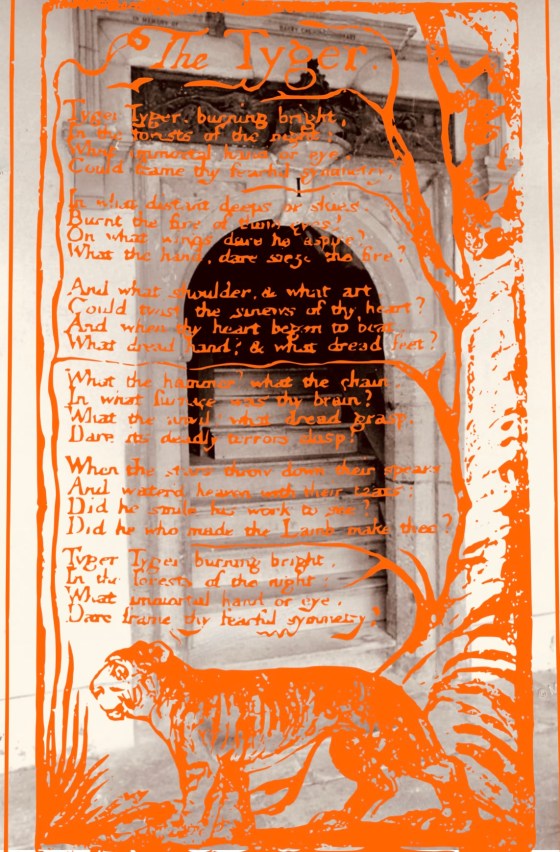 IN MEMORY OF
The Tyger
Tyger Tyger. burning bright,
In the forests of the night;
What immortal hand or eye.
Could frame thy fearful symmetry
In what distant deeps or skies.
Burnt the fire of thine eyes!
On what wings dare he aspire?
What the hand, dare sieze the fire?
And what shoulder, & what art,
Could twist the sinews of thy heart?
And when thy heart began to beat,
What dread hand? & what dread feet?
What the hammer? what the chain,
In what furnace was thy brain?
What the anvil what dread grasp,
Dare its deadly terrors clasp?
When the stars threw down their spears
And waterd heaven with their tears:
Did he smile his work to see?
Did he who made the Lamb make thee?
Tyger Tyger burning bright,
In the forests of the night:
What immortal hand or eye,
Dare frame thy fearful symmetry?